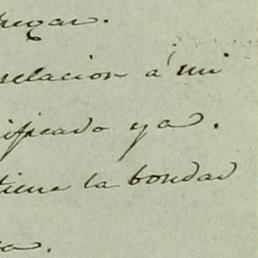 relacion a mi
ificado ya.
tiene la bondad